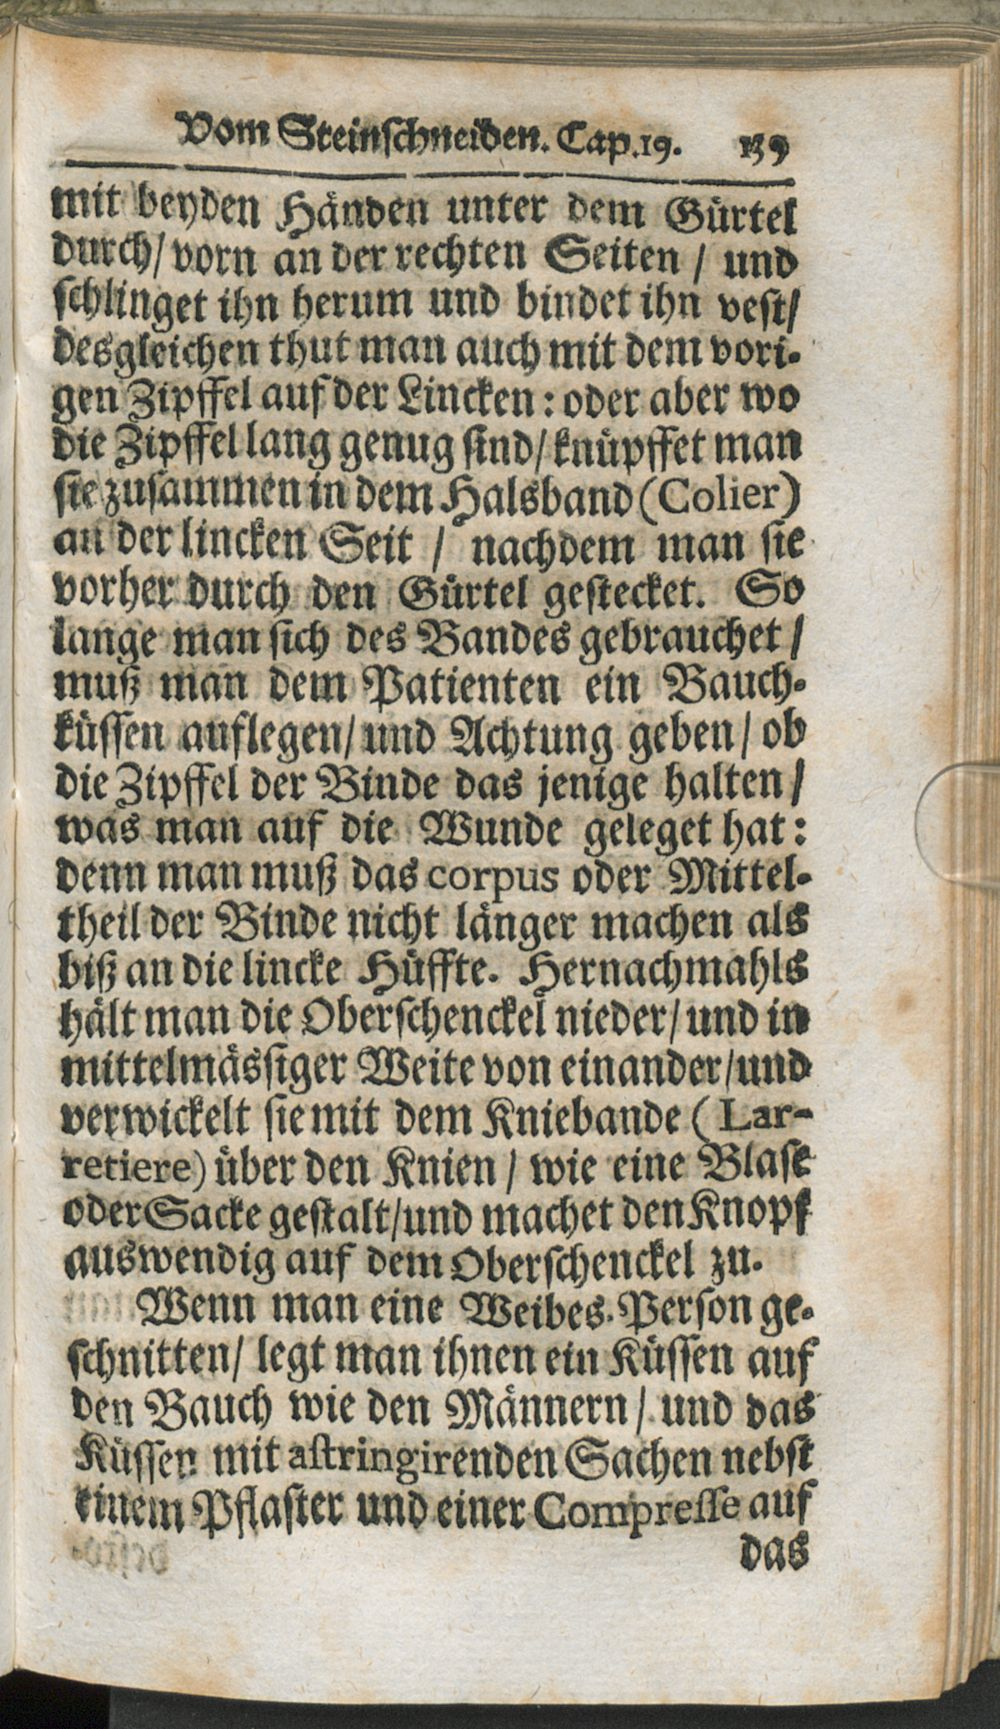 Vom Steinschneiden. Cap. 19. 139
mit beyden Händen unter dem Gürtel
durch/ vorn an der rechten Seiten / und
schlinget ihn herum und bindet ihn vest/
desgleichen thut man auch mit dem vori-
gen Zipffel auf der Lincken: oder aber wo
die Zipffel lang genug sind/ knüpffet man
sie zusammen in dem Halsband (Colier)
an der lincken Seit / nachdem man sie
vorher durch den Gürtel gestecket. So
lange man sich des Bandes gebrauchet /
muß man dem Patienten ein Bauch-
küssen auflegen/ und Achtung geben/ ob
die Zipffel der Binde das jenige halten/
was man auf die Wunde geleget hat:
denn man muß das corpus oder Mittel-
theil der Binde nicht länger machen als
biß an die lincke Hüffte. Hernachmahls
hält man die Oberschenckel nieder/ und in
mittelmässiger Weite von einander/ und
verwickelt sie mit dem Kniebande (Lar-
retiere) über den Knien / wie eine Blase
oder Sacke gestalt/ und machet den Knopf
auswendig auf dem Oberschenckel zu.
Wenn man eine Weibes-Person ge-
schnitten/ legt man ihnen ein Küssen auf
den Bauch wie den Männern / und das
Küssen mit astringirenden Sachen nebst
einem Pflaster und einer Compresse auf
das